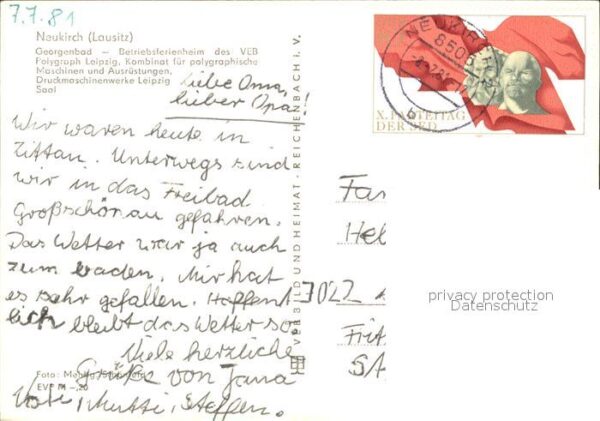 7.7.81
Neukirch (Lausitz)
Georgenbad — Betriebsferienheim des VEB
Polygraph Leipzig, Kombinat für polygraphische
Maschinen und Ausrüstungen,
Druckmaschinenwerke Leipzig
Saal
Liebe Oma,
lieber Opa!
Wir waren heute in
Zittau. Unterwegs sind
wir in das Freibad
Großschönau gefahren.
Das Wetter war ja auch
zum baden. Mir hat
es sehr gefallen. Hoffent
lich bleibt das Wetter so.
Viele herzliche
Grüße von Jana
Vati, Mutti, Steffen.
Foto:
EVP M -,20
VEB BILD UND HEIMAT · REICHENBACH i. V.
NEUKIRCH
8505
X. PARTEITAG
DER SED
Fa
Hel
7022
Frit
SA
privacy protection
Datenschutz